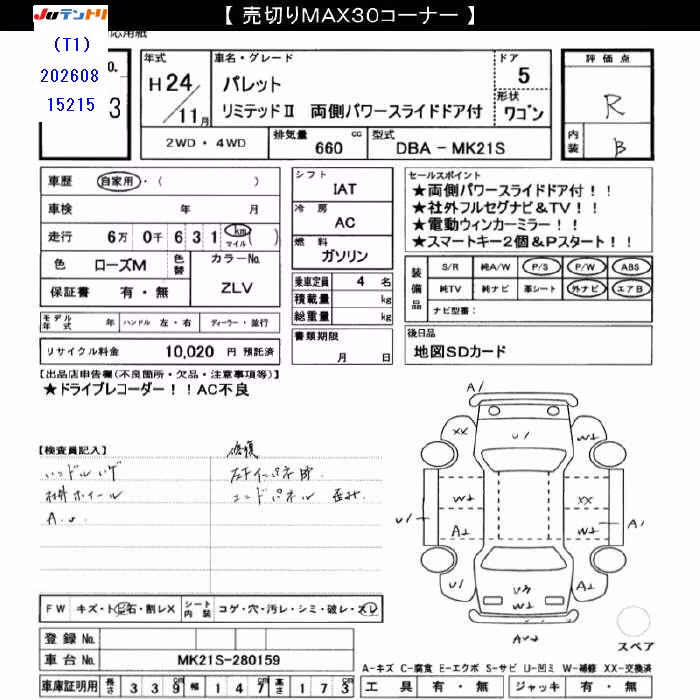 【 売切りMAX30コーナー 】
JUテントリ
(T1)
202608
15215
応用紙
o.
3
年式
H24/11月
車名・グレード
パレット
リミテッドⅡ 両側パワースライドドア付
ドア
5
形状
ワゴン
評価点
R
内装
B
2WD・4WD
排気量
660 cc
型式
DBA - MK21S
車歴 自家用・( )
車検 年 月
走行 6万 0千 6 3 1 km マイル ( )
色 ローズM 色替
カラーNo.
ZLV
保証書 有・無
モデル年式 年 ハンドル 左・右 ディーラー・並行
リサイクル料金 10,020 円 預託済
シフト
IAT
冷房
AC
燃料
ガソリン
乗車定員 4 名
積載量 kg
総重量 kg
書類期限
月 日
セールスポイント
★両側パワースライドドア付!!
★社外フルセグナビ&TV!!
★電動ウィンカーミラー!!
★スマートキー2個&Pスタート!!
装備品
S/R 純A/W P/S P/W ABS
純TV 純ナビ 革シート 外ナビ エアB
ナビ型番:
後日品
地図SDカード
【出品店申告欄(不良箇所・欠品・注意事項等)】
★ドライブレコーダー!!AC不良
【検査員記入】
修復
ハンドルハゲ
社外ホイール
コンドパネル 歪み.
A1
XX
U1
W2
W2
XX
U1
A2
W2
A1
U1
U3
W2
A2
スペア
FW キズ・ト石・割レX
シート内装 コゲ・穴・汚レ・シミ・破レ・スレ
登録No.
車台No. MK21S-280159
車庫証明用 長さ 3 3 9 幅 1 4 7 高さ 1 7 3
A-キズ C-腐食 E-エクボ S-サビ U-凹ミ W-補修 XX-交換済
工具 有・無 ジャッキ 有・無